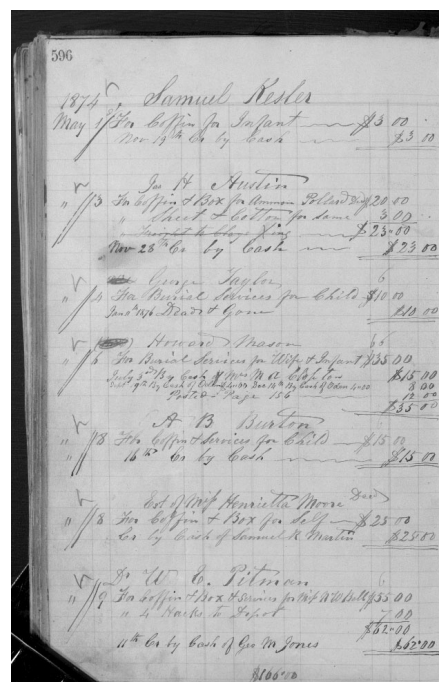 596
1874 Samuel Kesler
May 1 For Coffin for Infant $3 00
Nov 19th Cr by Cash $3 00
Jas H Austin
" 3 For Coffin & Box for Pollard Decd $20 00
" Sheet & Cotton for same 3 00
$23 00
Nov 28th Cr by Cash $23 00
George Taylor
" 4 For Burial Services for Child $10 00
Jan 1876 Dead & Gone $10 00
Howard Mason
" 6 For Burial Services for Wife & Infant $35 00
July 3rd By Cash of Mrs M A $15 00
8 00
Posted Page 156 12 00
$35 00
A B Burton
" 8 For Coffin & Services for Child $15 00
16th Cr by Cash $15 00
Est of Miss Henrietta Moore Decd
" 8 For Coffin & Box for Self $25 00
Cr by Cash of Samuel R Martin $25 00
Dr W E Pitman
" 9 For Coffin & Box & Services for $55 00
" 4 Hacks to Depot 7 00
$62 00
11th Cr by Cash of Geo M Jones $62 00
$166 00